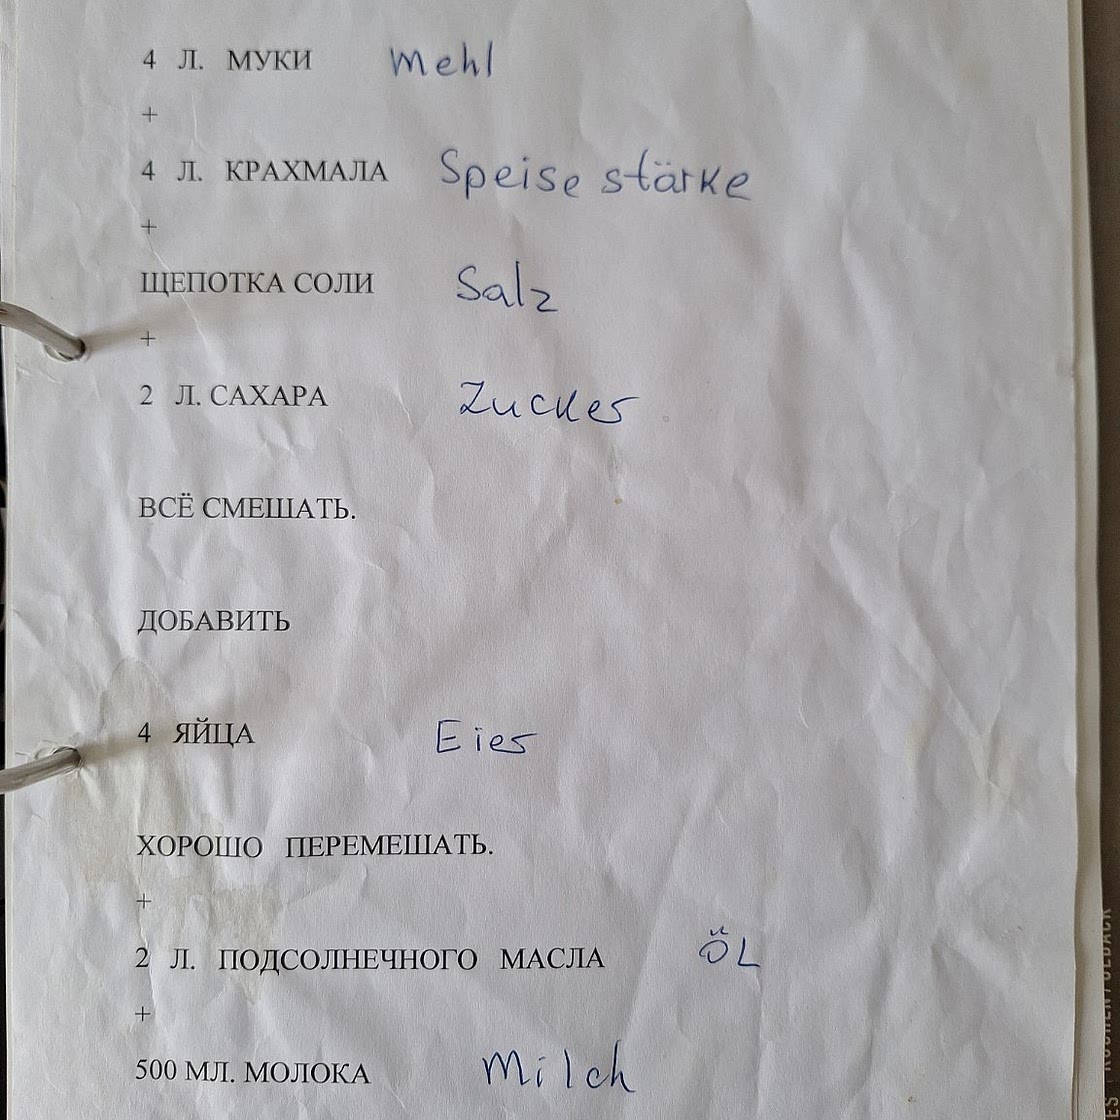 4 Л. МУКИ Mehl
+
4 Л. КРАХМАЛА Speisestärke
+
ЩЕПОТКА СОЛИ Salz
+
2 Л. САХАРА Zucker
ВСЁ СМЕШАТЬ.
ДОБАВИТЬ
4 ЯЙЦА Eier
ХОРОШО ПЕРЕМЕШАТЬ.
+
2 Л. ПОДСОЛНЕЧНОГО МАСЛА ÖL
+
500 МЛ. МОЛОКА Milch